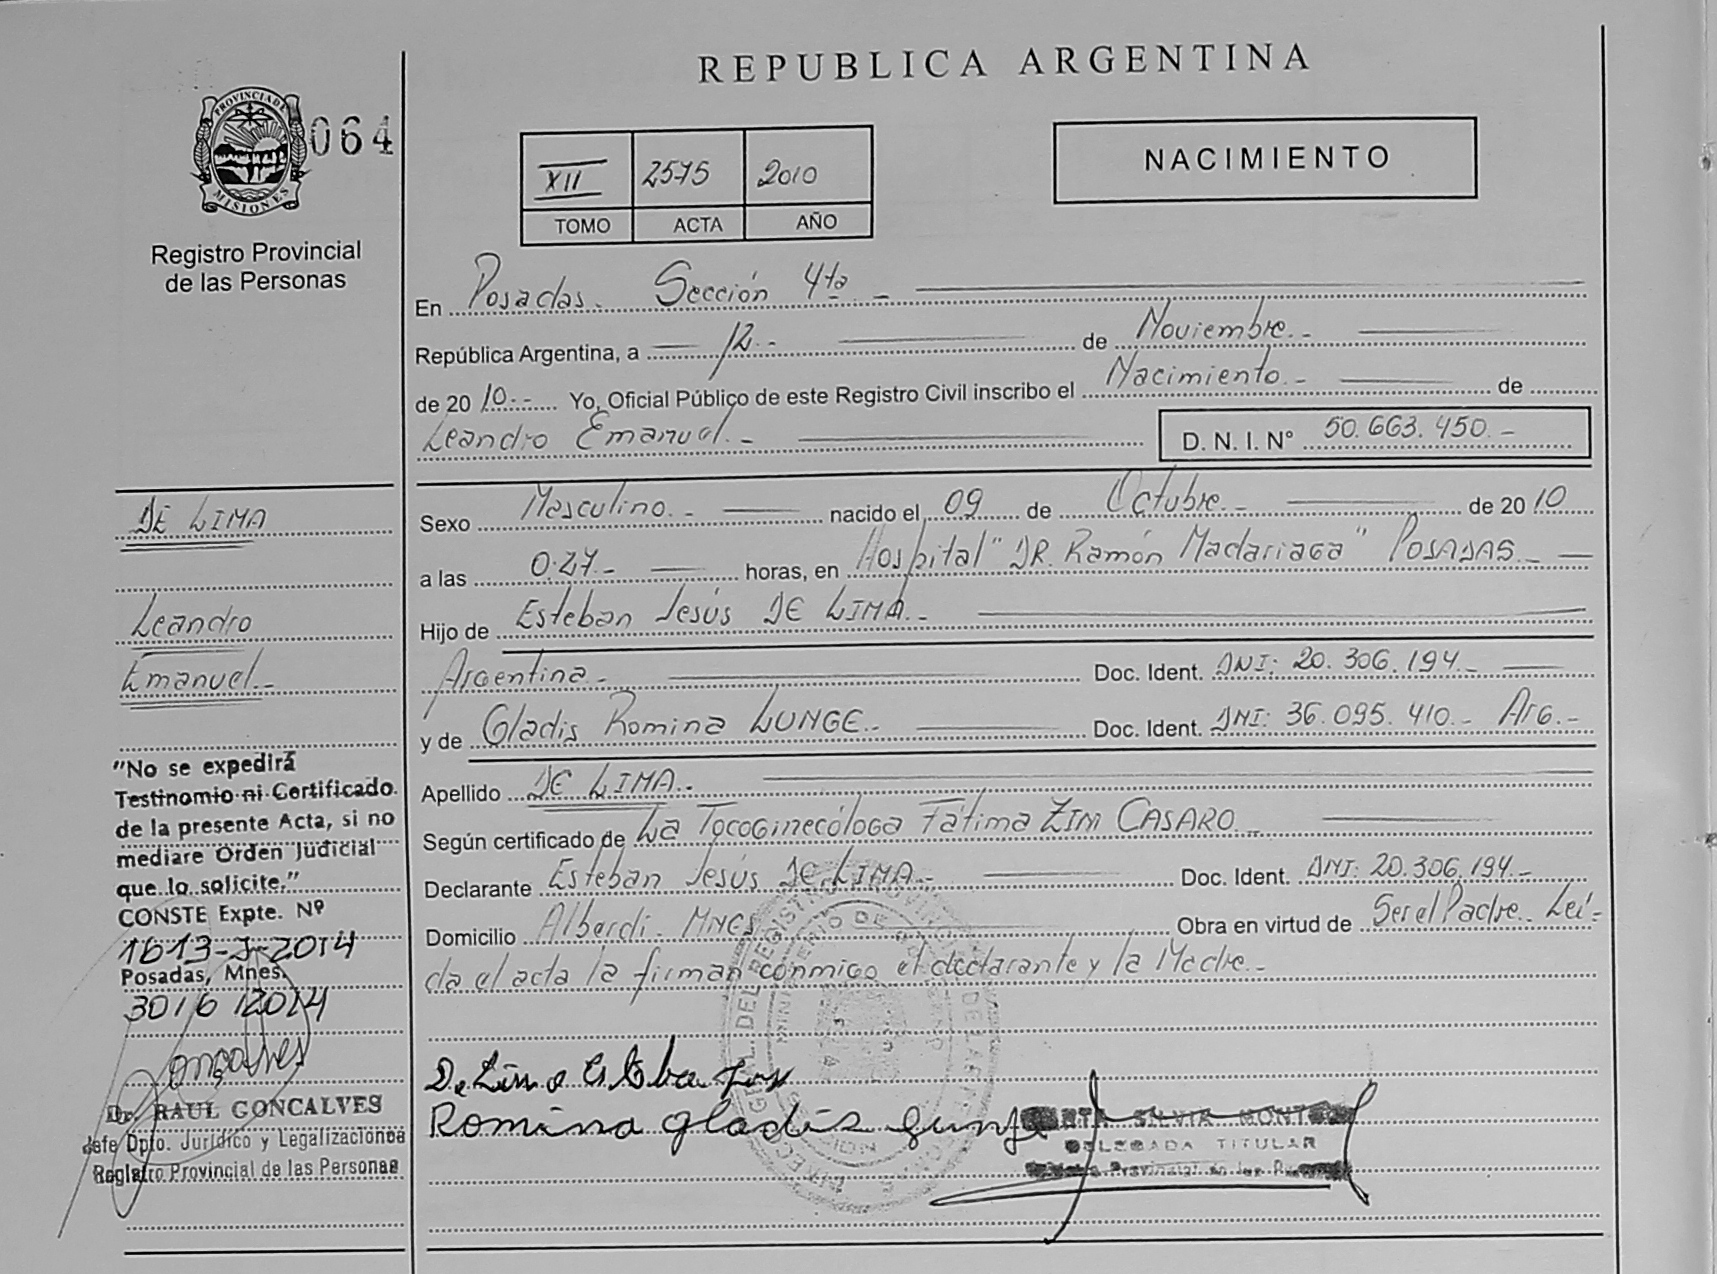 REPUBLICA ARGENTINA
PROVINCIA DE
MISIONES
064
Registro Provincial
de las Personas
XII 2575 2010
TOMO ACTA AÑO
NACIMIENTO
En Posadas. Sección 4ta. -
República Argentina, a 12.- de Noviembre.-
de 2010.- Yo, Oficial Público de este Registro Civil inscribo el Nacimiento.- de
Leandro Emanuel.- D. N. I. N° 50.663.450.-
Sexo Masculino.- nacido el 09 de Octubre.- de 2010
a las 0.27.- horas, en Hospital "DR. Ramón Madariaga" POSADAS.-
Hijo de Esteban Jesús DE LIMA.-
Argentina.- Doc. Ident. DNI: 20.306.194.-
y de Gladis Romina LUNGE.- Doc. Ident. DNI: 36.095.410.- Arg.-
Apellido DE LIMA.-
Según certificado de La Tocoginecóloga Fátima ZIM CASARO.-
Declarante Esteban Jesús DE LIMA.- Doc. Ident. DNI: 20.306.194.-
Domicilio Alberdi. MNES Obra en virtud de Ser el Padre. Leí-
da el acta la firman conmigo el declarante y la Madre.-
De Lima Esteban
Romina Gladis Lunge
SILVIA
DELEGADA TITULAR
DE LIMA
Leandro
Emanuel.-
"No se expedirá
Testinomio ni Certificado
de la presente Acta, si no
mediare Orden Judicial
que lo solicite."
CONSTE Expte. Nº
1613-J-2014
Posadas, Mnes.
30/6/2014
Goncalves
Dr. RAUL GONCALVES
Jefe Dpto. Jurídico y Legalizaciones
Registro Provincial de las Personas